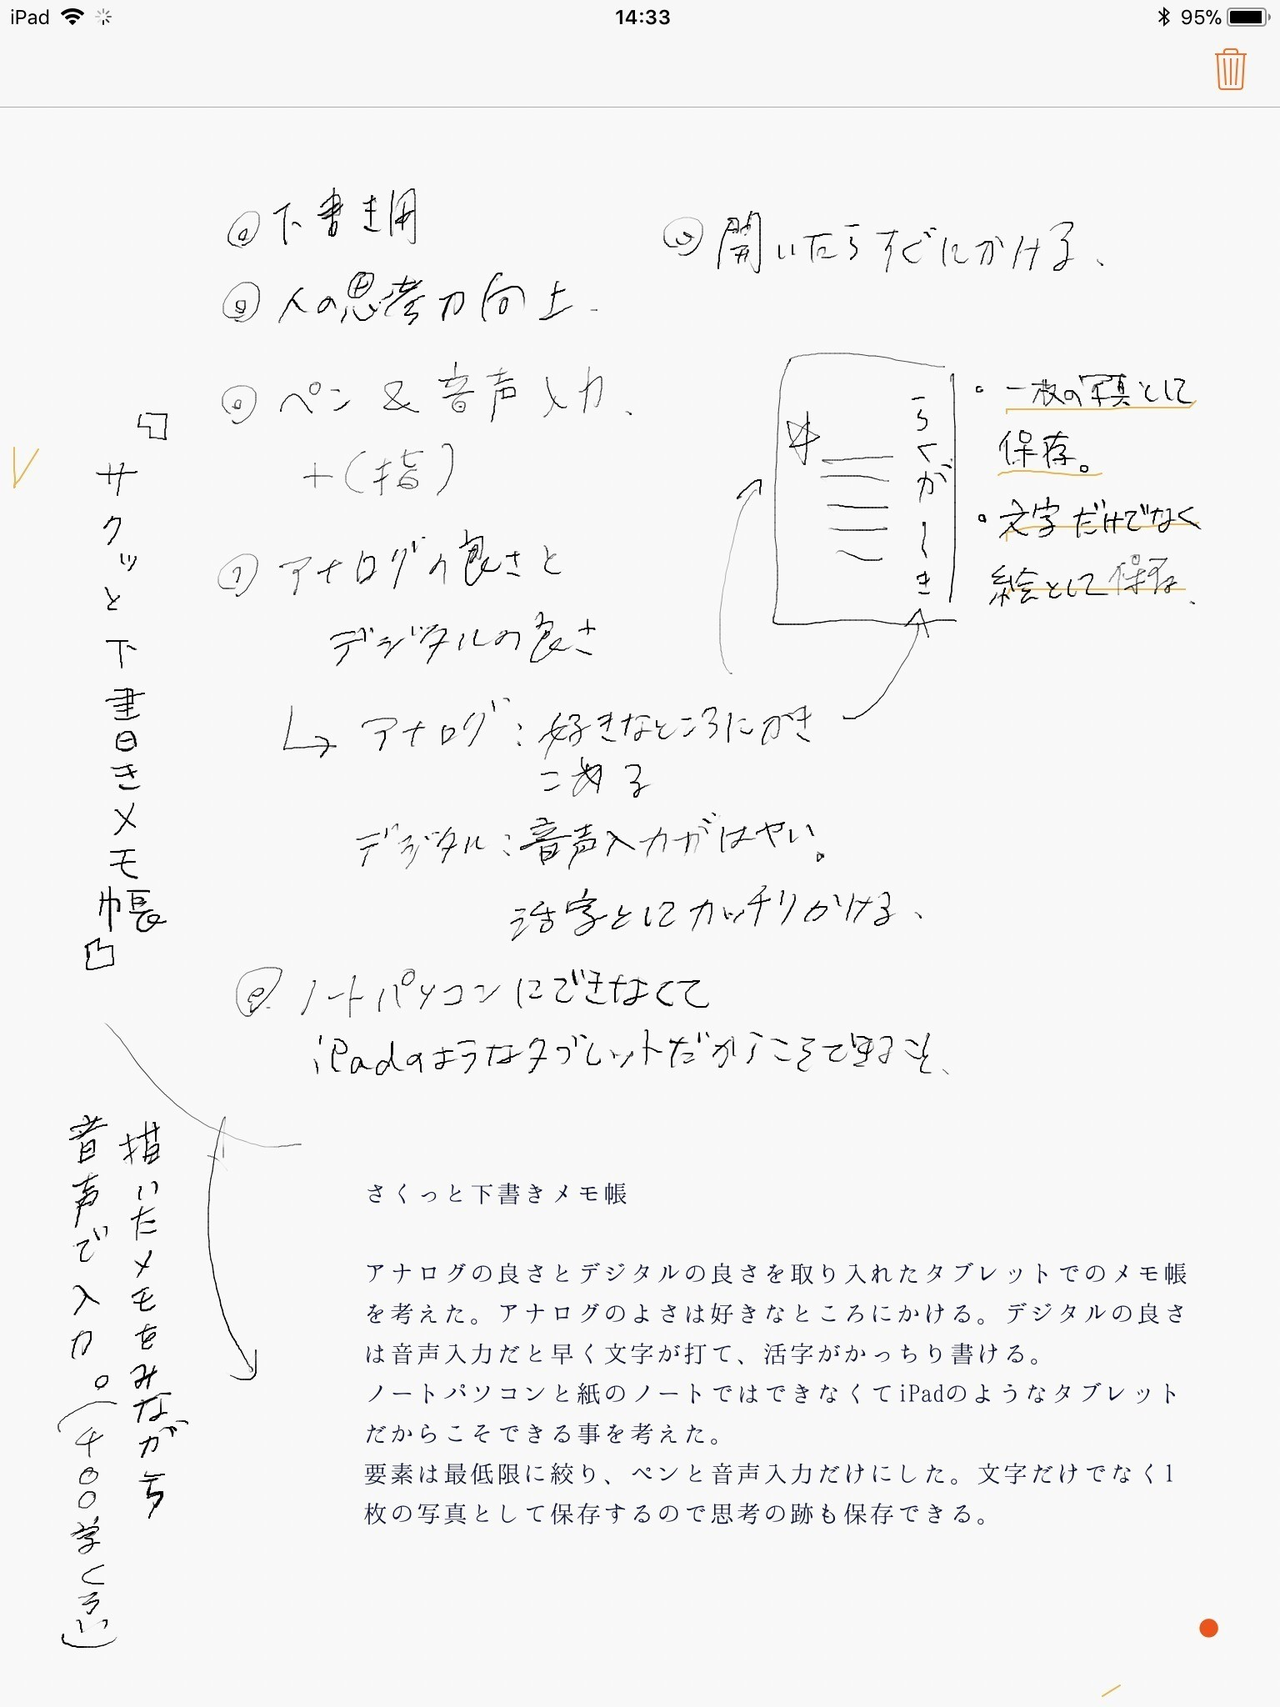 iPad
14:33
95%
下書き用
人の思考力向上.
ペン & 音声入力、
+(指)
アナログの良さと
デジタルの良さ
アナログ:好きなところにがき
こめる
デジタル:音声入力がはやい。
活字としてカッチリかける、
ノートパソコンにできなくて
iPadのようなタブレットだからこそできること、
開いたらすぐにかける、
らくがき
・一枚の写真として
保存。
・文字だけでなく
絵として保存、
「サクッと下書きメモ帳」
描いたメモをみながら
音声で入力。(400字くらい)
さくっと下書きメモ帳
アナログの良さとデジタルの良さを取り入れたタブレットでのメモ帳
を考えた。アナログのよさは好きなところにかける。デジタルの良さ
は音声入力だと早く文字が打て、活字がかっちり書ける。
ノートパソコンと紙のノートではできなくてiPadのようなタブレット
だからこそできる事を考えた。
要素は最低限に絞り、ペンと音声入力だけにした。文字だけでなく1
枚の写真として保存するので思考の跡も保存できる。